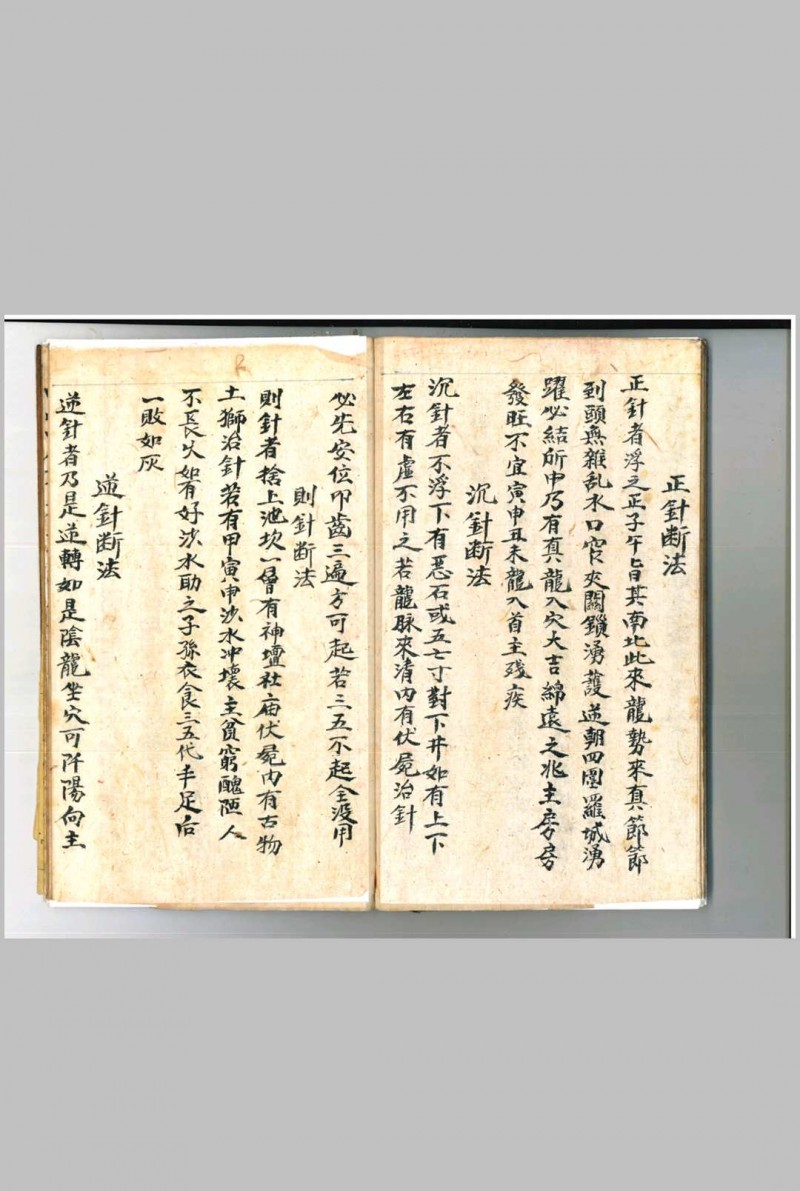 正針断法
正針者浮之正子午㫖其南北此來龍勢來真節節
到頭無雜乱水口窄夾關鎖湧護逆朝四圍羅城湧
躍必結所中乃有真龍入穴大吉綿遠之兆主房房
發旺不宜寅申丑未龍入首主殘疾
沉針断法
沉針者不浮下有惡石或五七寸對下井如有上下
左右有虛不用之若龍脉來清内有伏屍治針
必先安位叩齒三遍方可起若三五不起全没用
則針断法
則針者捨上池坎一層有神壇社庙伏屍内有古物
土獅治針若有甲寅申沙水冲壞主貧窮醜陋人
不長久如有好沙水助之子孫衣食三五代手足后
一敗如灰
逆針断法
逆針者乃是逆轉如是陰龍坐穴可阡陽向主